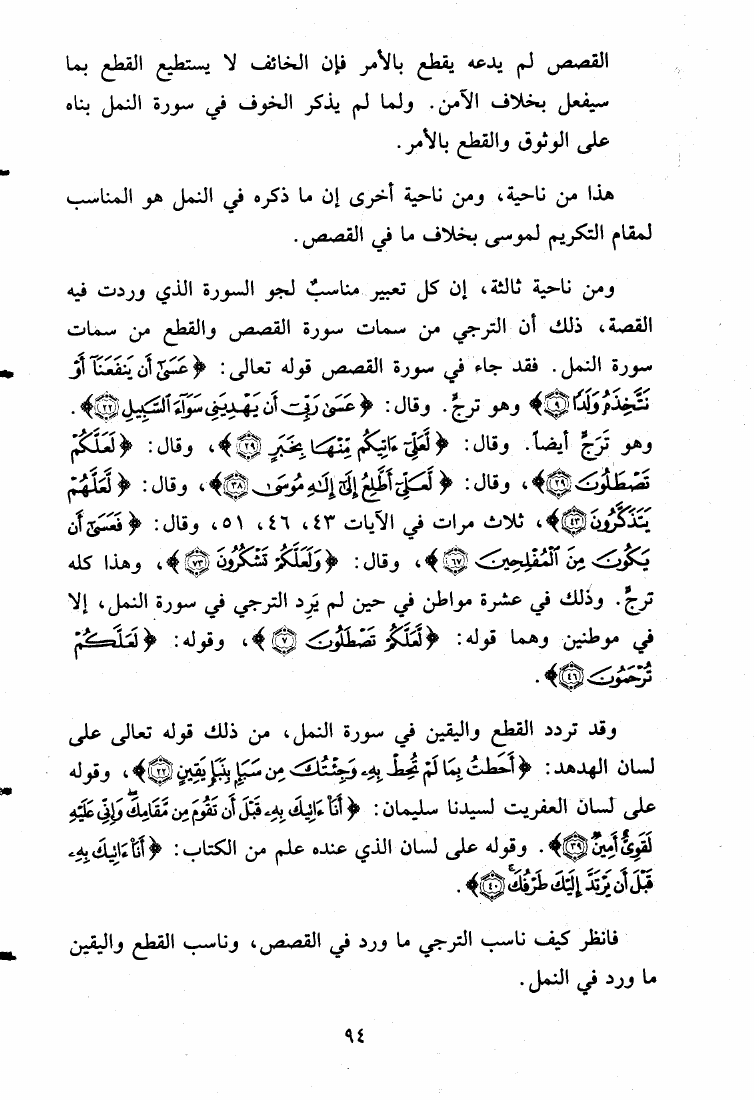 القصص لم يدعه يقطع بالأمر فإن الخائف لا يستطيع القطع بما
سيفعل بخلاف الآمن. ولما لم يذكر الخوف في سورة النمل بناه
على الوثوق والقطع بالأمر.
هذا من ناحية، ومن ناحية أخرى إن ما ذكره في النمل هو المناسب
لمقام التكريم لموسى بخلاف ما في القصص.
ومن ناحية ثالثة، إن كل تعبير مناسبٌ لجو السورة الذي وردت فيه
القصة، ذلك أن الترجي من سمات سورة القصص والقطع من سمات
سورة النمل. فقد جاء في سورة القصص قوله تعالى: ﴿عَسَىٰٓ أَن يَنفَعَنَآ أَوْ
نَتَّخِذَهُۥ وَلَدًا ۝٩﴾ وهو ترجٍّ. وقال: ﴿عَسَىٰ رَبِّىٓ أَن يَهْدِيَنِى سَوَآءَ ٱلسَّبِيلِ ۝٢٢﴾.
وهو تَرَجٍّ أيضاً. وقال: ﴿لَّعَلِّىٓ ءَاتِيكُم مِّنْهَا بِخَبَرٍ ۝٢٩﴾، وقال: ﴿لَعَلَّكُمْ
تَصْطَلُونَ ۝٢٩﴾، وقال: ﴿لَّعَلِّىٓ أَطَّلِعُ إِلَىٰٓ إِلَٰهِ مُوسَىٰ ۝٣٨﴾، وقال: ﴿لَّعَلَّهُمْ
يَتَذَكَّرُونَ ۝٤٣﴾، ثلاث مرات في الآيات ٤٣، ٤٦، ٥١، وقال: ﴿فَعَسَىٰٓ أَن
يَكُونَ مِنَ ٱلْمُفْلِحِينَ ۝٦٧﴾، وقال: ﴿وَلَعَلَّكُمْ تَشْكُرُونَ ۝٧٣﴾، وهذا كله
ترجٍّ. وذلك في عشرة مواطن في حين لم يَرِد الترجي في سورة النمل، إلا
في موطنين وهما قوله: ﴿لَّعَلَّكُمْ تَصْطَلُونَ ۝٧﴾، وقوله: ﴿لَعَلَّكُمْ
تُرْحَمُونَ ۝٤٦﴾.
وقد تردد القطع واليقين في سورة النمل، من ذلك قوله تعالى على
لسان الهدهد: ﴿أَحَطتُ بِمَا لَمْ تُحِطْ بِهِۦ وَجِئْتُكَ مِن سَبَإٍۭ بِنَبَإٍ يَقِينٍ ۝٢٢﴾، وقوله
على لسان العفريت لسيدنا سليمان: ﴿أَنَا۠ ءَاتِيكَ بِهِۦ قَبْلَ أَن تَقُومَ مِن مَّقَامِكَ ۖ وَإِنِّى عَلَيْهِ
لَقَوِىٌّ أَمِينٌ ۝٣٩﴾. وقوله على لسان الذي عنده علم من الكتاب: ﴿أَنَا۠ ءَاتِيكَ بِهِۦ
قَبْلَ أَن يَرْتَدَّ إِلَيْكَ طَرْفُكَ ۚ ۝٤٠﴾.
فانظر كيف ناسب الترجي ما ورد في القصص، وناسب القطع واليقين
ما ورد في النمل.
٩٤